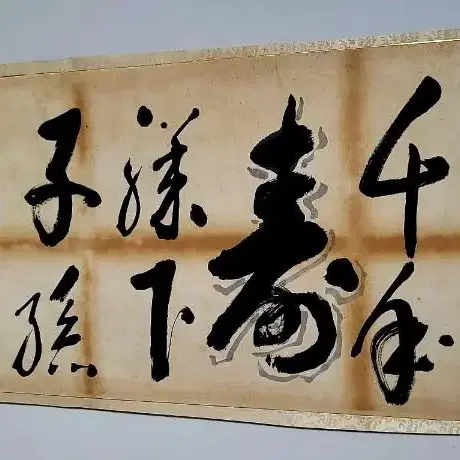 千年
壽
膝下
子孫